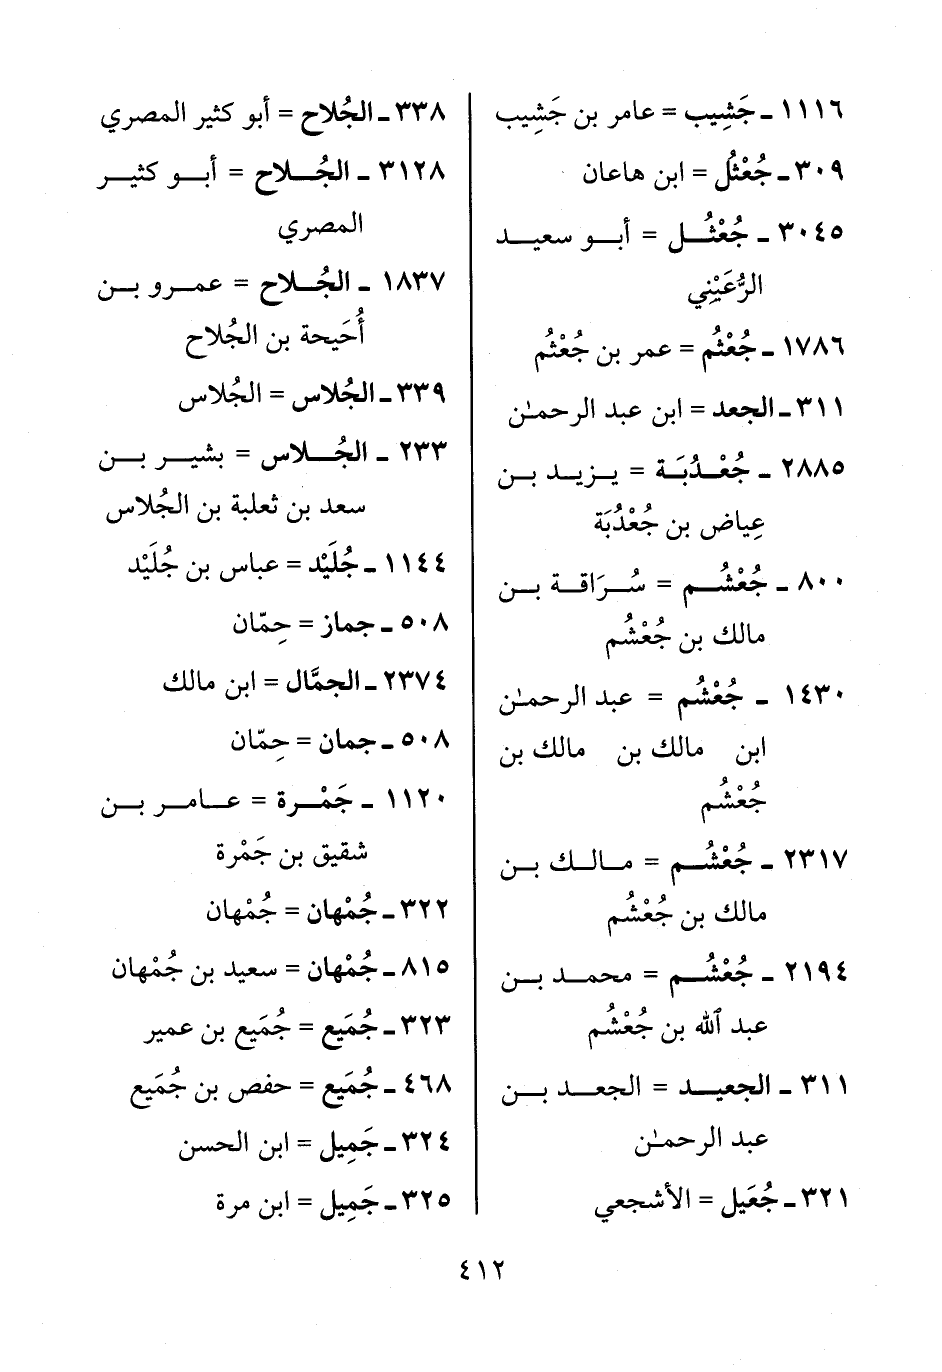 ١١١٦ ـ جَشِيب = عامر بن جَشِيب
٣٠٩ ـ جُعْثُل = ابن هاعان
٣٠٤٥ ـ جُعْثُـل = أبـو سعيـد
الرُّعَيْني
١٧٨٦ ـ جُعْثُم = عمر بن جُعْثُم
٣١١ ـ الجعد = ابن عبد الرحمـٰن
٢٨٨٥ ـ جُعْـدُبَـة = يـزيـد بـن
عِياض بن جُعْدُبَة
٨٠٠ ـ جُعْشُـم = سُـرَاقـة بـن
مالك بن جُعْشُم
١٤٣٠ ـ جُعْشُم = عبد الرحمـٰن
ابن مالك بن مالك بن
جُعْشُم
٢٣١٧ ـ جُعْشُـم = مـالـك بـن
مالك بن جُعْشُم
٢١٩٤ ـ جُعْشُـم = محمـد بـن
عبد ٱلله بن جُعْشُم
٣١١ ـ الجعيـد = الجعـد بـن
عبد الرحمـٰن
٣٢١ ـ جُعَيل = الأشجعي
٣٣٨ ـ الجُلاح = أبو كثير المصري
٣١٢٨ ـ الجُـلاح = أبـو كثيـر
المصري
١٨٣٧ ـ الجُـلاح = عمـرو بـن
أُحَيحة بن الجُلاح
٣٣٩ ـ الجُلاس = الجُلاس
٢٣٣ ـ الجُـلاس = بشيـر بـن
سعد بن ثعلبة بن الجُلاس
١١٤٤ ـ جُلَيْد = عباس بن جُلَيْد
٥٠٨ ـ جماز = حِمّان
٢٣٧٤ ـ الجمَّال = ابن مالك
٥٠٨ ـ جمان = حِمّان
١١٢٠ ـ جَمْـرة = عـامـر بـن
شقيق بن جَمْرة
٣٢٢ ـ جُمْهان = جُمْهان
٨١٥ ـ جُمْهان = سعيد بن جُمْهان
٣٢٣ ـ جُمَيع = جُمَيع بن عمير
٤٦٨ ـ جُمَيع = حفص بن جُمَيع
٣٢٤ ـ جَمِيل = ابن الحسن
٣٢٥ ـ جَمِيل = ابن مرة
٤١٢